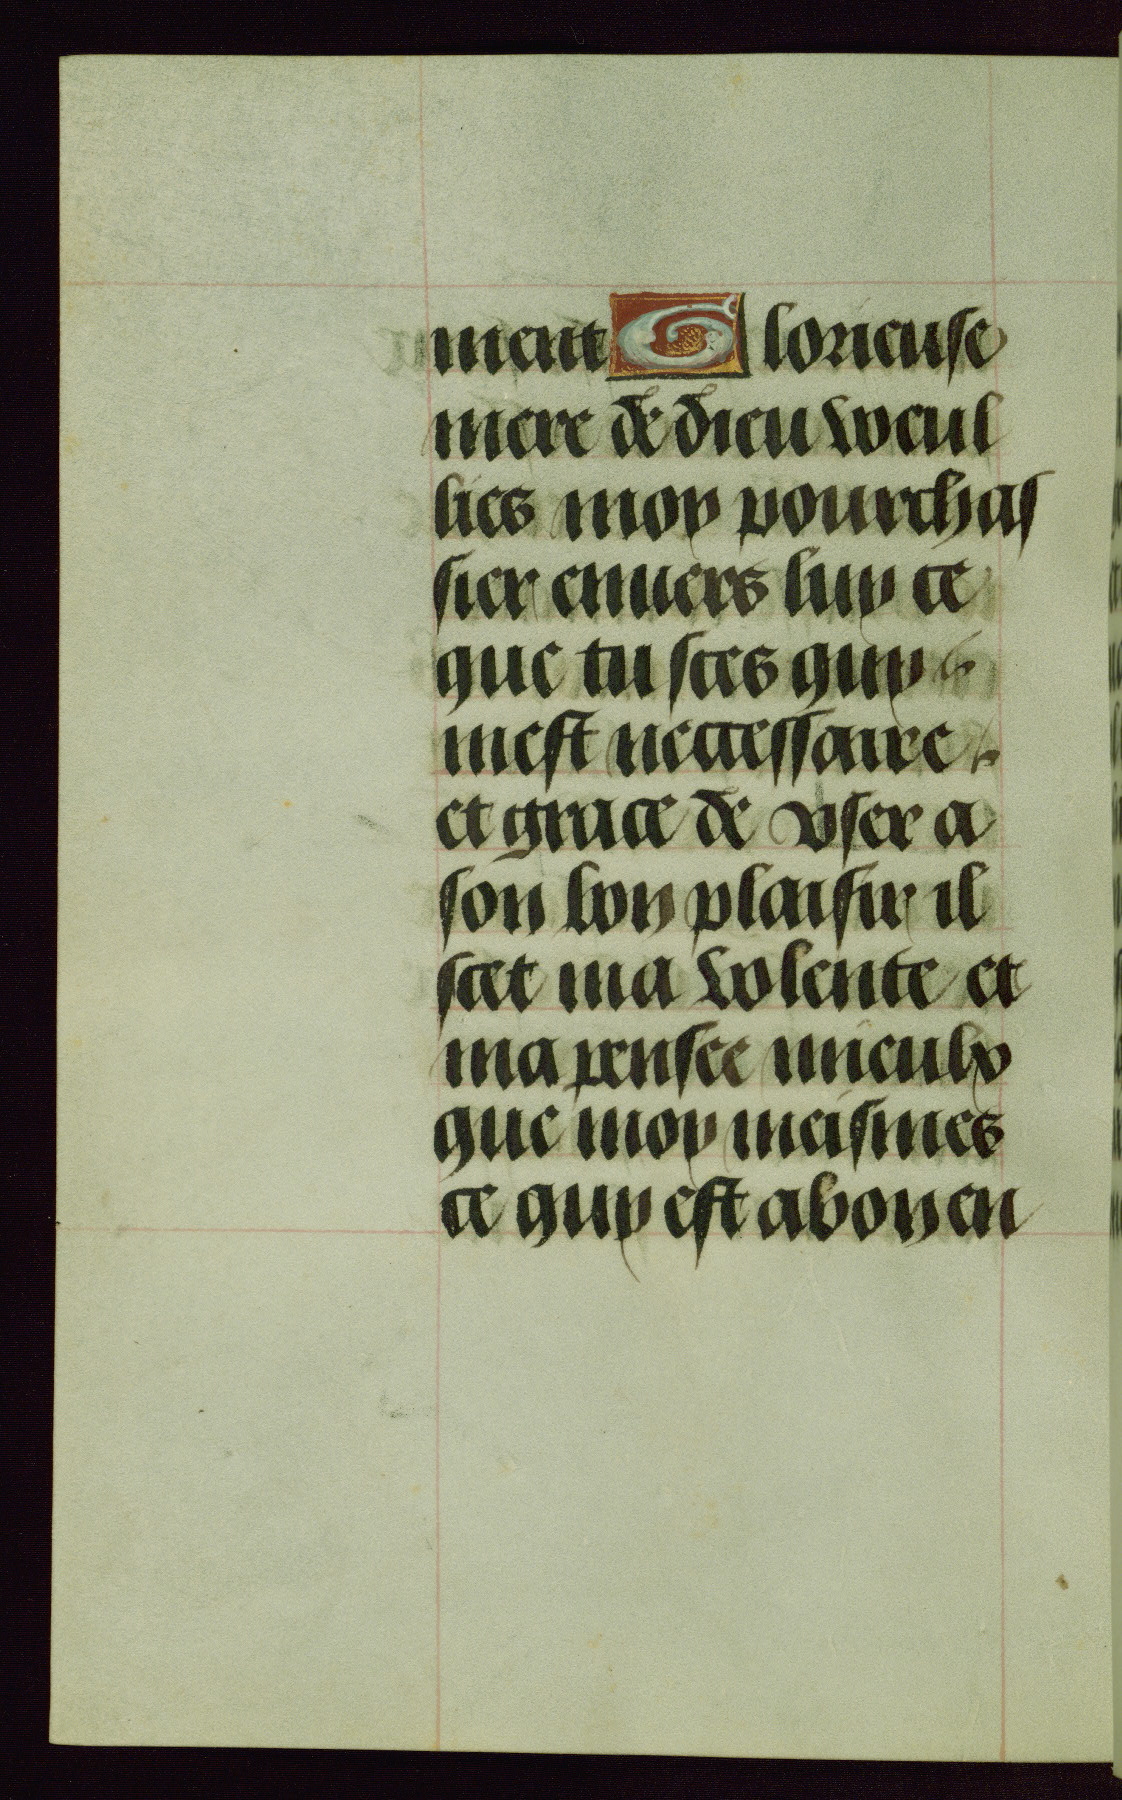 ment Glorieuse
mere de dieu vveul
lies moy pourchas
sier enuers luy ce
que tu sces quy
mest neccessaire
et grace de vser a
son bon plaisir il
scet ma volente et
ma pensee mieulx
que moy meismes
ce quy est a bon en